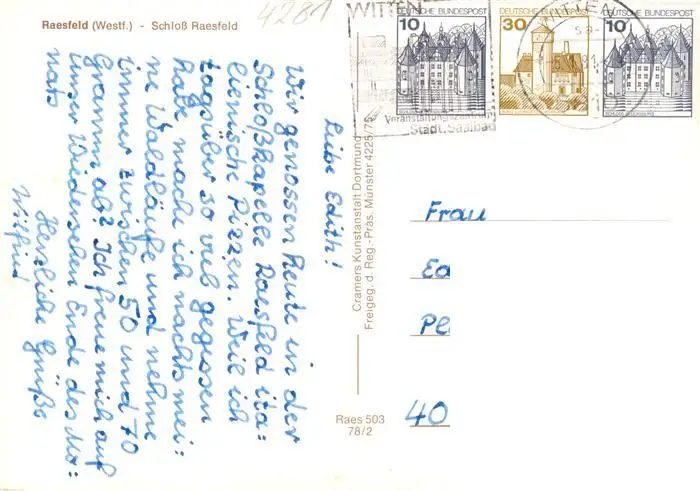 Raesfeld (Westf.) - Schloß Raesfeld
4281
WITTEN
Veranstaltungszentrum
Stadt. Saalbau
10
DEUTSCHE BUNDESPOST
SCHLOSS GLÜCKSBURG
30
DEUTSCHE BUNDESPOST
WITTEN
10
DEUTSCHE BUNDESPOST
SCHLOSS GLÜCKSBURG
Liebe Edith!
Wir genossen heute in der
Schloßkapelle Raesfeld ita=
lienische Pizzen. Weil ich
tagsüber so viel gegessen
habe mache ich nachts mei=
ne Waldläufe und nehme
immer zwischen 50 und 70
Gramm ab? Ich freue mich auf
unser Wiedersehen Ende des Mo=
nats
Herzliche Grüße
Wilfried
Cramers Kunstanstalt Dortmund
Freigeg. d. Reg.-Präs. Münster 4225/75
Raes 503
78/2
Frau
Ed
Pe
40